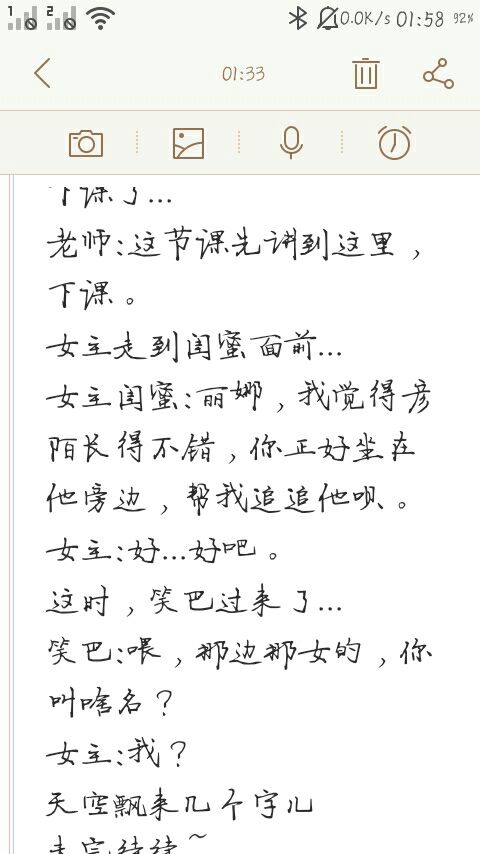 1 2 0.0K/s 01:58 92%
01:33
下课了...
老师:这节课先讲到这里，
下课。
女主走到闺蜜面前...
女主闺蜜:丽娜，我觉得彦
陌长得不错，你正好坐在
他旁边，帮我追追他呗。
女主:好...好吧。
这时，笑巴过来了...
笑巴:喂，那边那女的，你
叫啥名？
女主:我？
天空飘来几个字儿
未完待续~